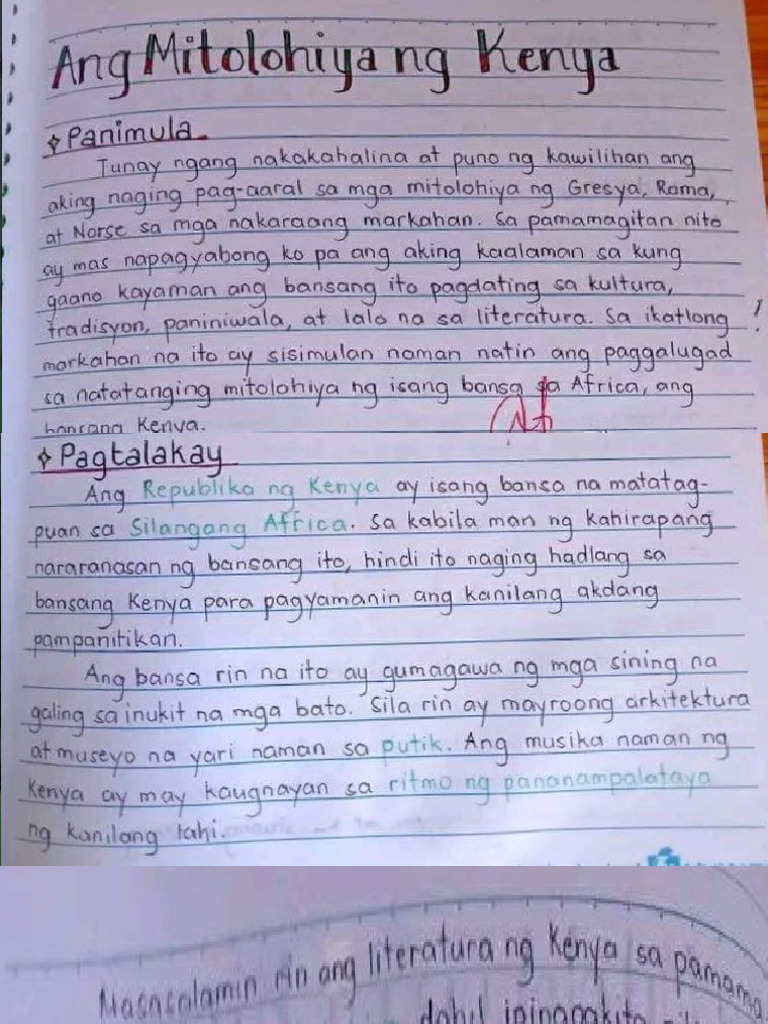 Ang Mitolohiya ng Kenya
Panimula
Tunay ngang nakakahalina at puno ng kawilihan ang
aking naging pag-aaral sa mga mitolohiya ng Gresya, Roma,
at Norse sa mga nakaraang markahan. Sa pamamagitan nito
ay mas napagyabong ko pa ang aking kaalaman sa kung
gaano kayaman ang bansang ito pagdating sa kultura,
tradisyon, paniniwala, at lalo na sa literatura. Sa ikatlong
markahan na ito ay sisimulan naman natin ang paggalugad
sa natatanging mitolohiya ng isang bansa sa Africa, ang
bansang Kenya.
Pagtalakay
Ang Republika ng Kenya ay isang bansa na matatag-
puan sa Silangang Africa. Sa kabila man ng kahirapang
nararanasan ng bansang ito, hindi ito naging hadlang sa
bansang Kenya para pagyamanin ang kanilang akdang
pampanitikan.
Ang bansa rin na ito ay gumagawa ng mga sining na
galing sa inukit na mga bato. Sila rin ay mayroong arkitektura
at museyo na yari naman sa putik. Ang musika naman ng
Kenya ay may kaugnayan sa ritmo ng pananampalataya
ng kanilang lahi.
Masasalamin rin ang literatura ng Kenya sa pamama
dahil ipinapakita